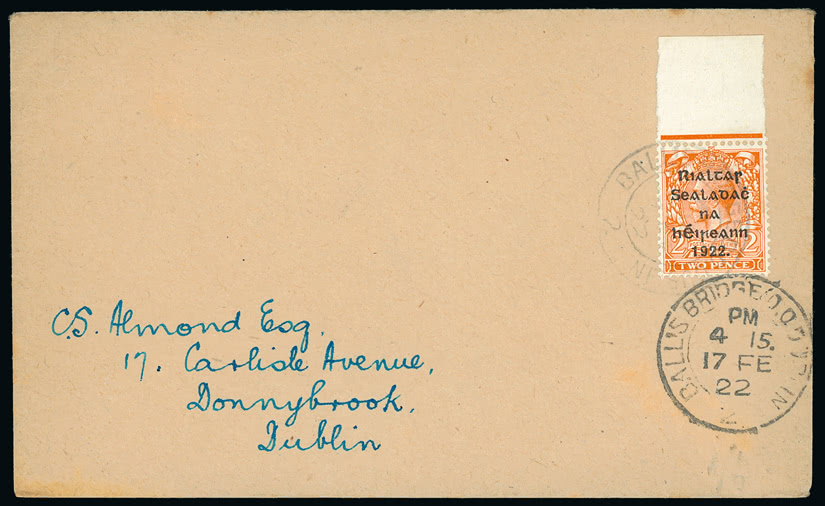 Rialtas
Sealadaċ
na
hÉireann
1922.
2 2
TWO PENCE
BALLS BRIDGE
PM
4 15.
17 FE
22
C.S. Almond Esq.
17. Carlisle Avenue,
Donnybrook,
Dublin